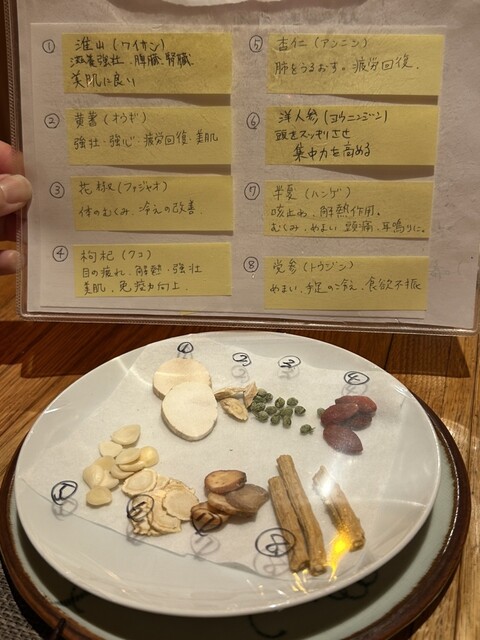 ① 淮山(ワイサン)
滋養強壮、脾臓、腎臓
美肌に良い
② 黄耆(オウギ)
強壮・強心・疲労回復、美肌
③ 花椒(ファジャオ)
体のむくみ、冷えの改善
④ 枸杞(クコ)
目の疲れ、解熱・強壮
美肌、免疫力向上
⑤ 杏仁(アンニン)
肺をうるおす。疲労回復
⑥ 洋人参(ヨウニンジン)
頭をスッキリさせ
集中力を高める
⑦ 半夏(ハンゲ)
咳止め、解熱作用。
むくみ、めまい 頭痛、耳鳴りに。
⑧ 党参(トウジン)
めまい、手足の冷え、食欲不振
① ② ③ ④
⑤ ⑥ ⑦ ⑧